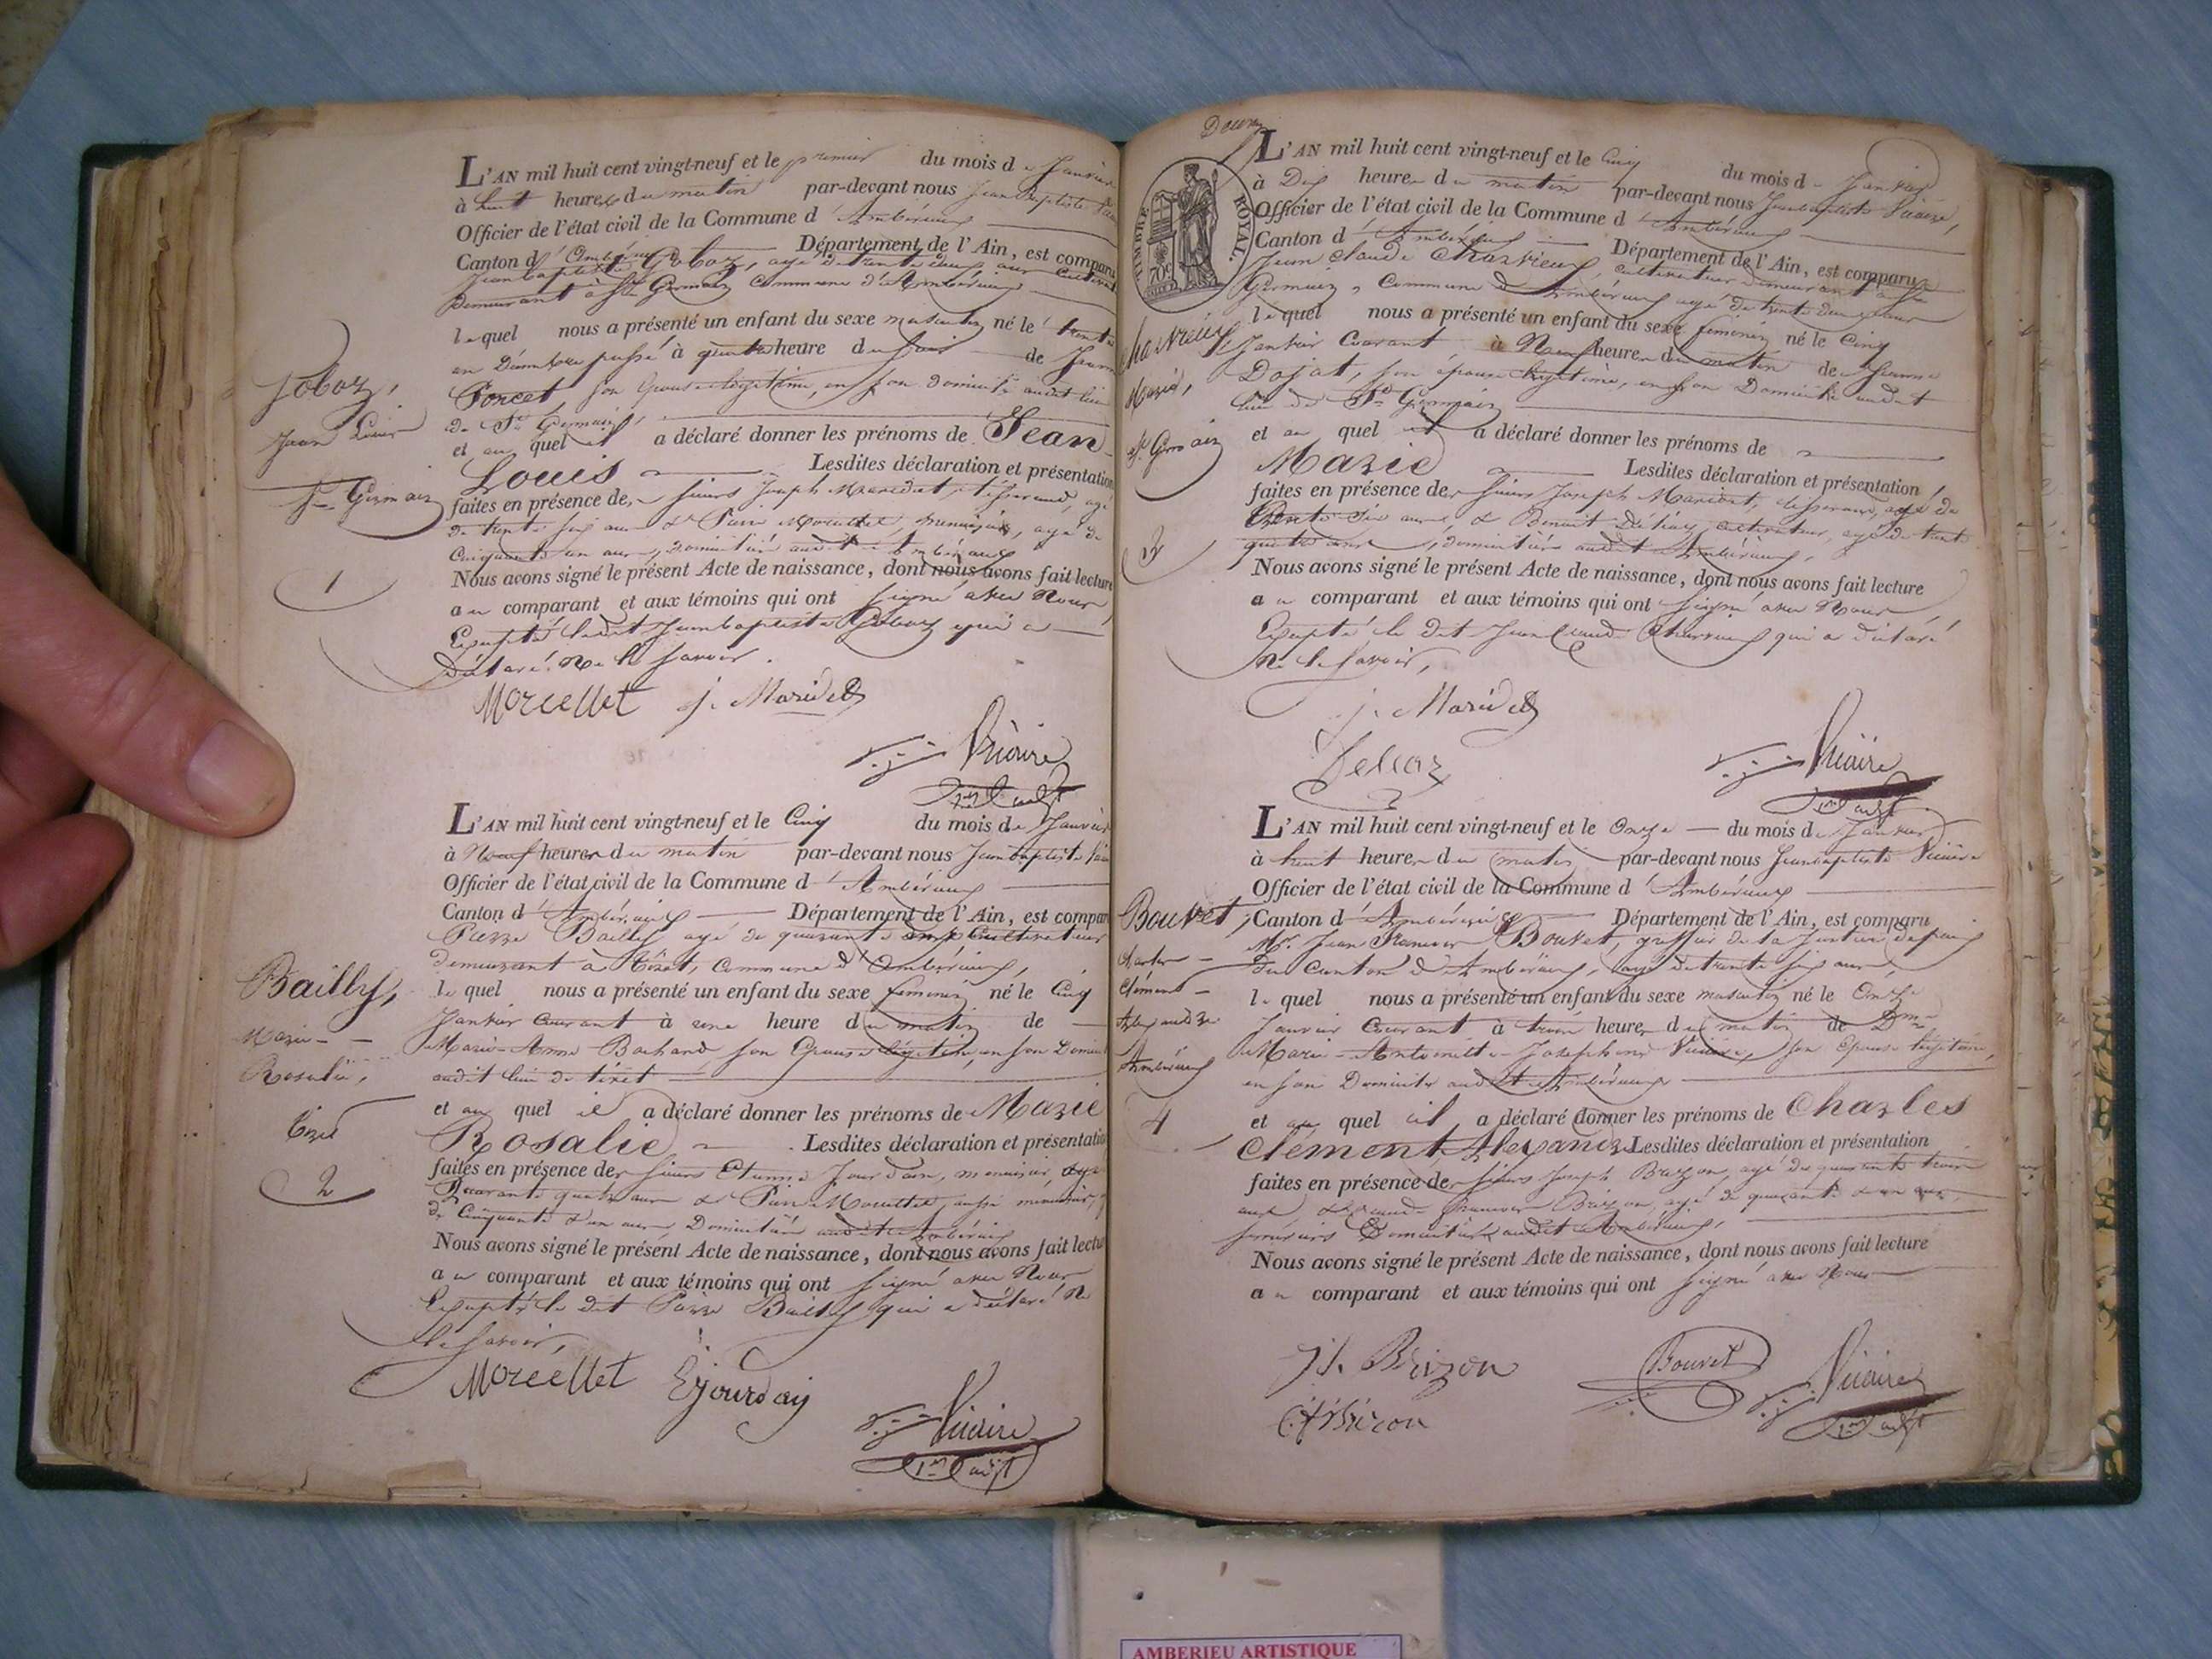 Jobaz,
Jean Louis
St. Germain
1
L'AN mil huit cent vingt-neuf et le premier du mois de Janvier
à huit heures du matin par-devant nous Jean Baptiste
Officier de l'état civil de la Commune d'Ambérieux
Canton d'Ambérieux Département de l'Ain, est comparu
Jean baptiste Jobaz, agé de trente deux ans cultivat
demeurant à St. Germain commune d'Ambérieux
lequel nous a présenté un enfant du sexe masculin né le trente
un Décembre passé à heure du soir de Jeanne
Porcet, son épouse légitime, en son domicile audit lieu
de St. Germain,
et auquel il a déclaré donner les prénoms de Jean
Louis Lesdites déclaration et présentation
faites en présence des sieurs Joseph Maridet, tisserand, agé
de trente six ans & Pierre Morcellet, menuisier, agé de
Cinquante un ans, domiciliés audit Ambérieux
Nous avons signé le présent Acte de naissance, dont nous avons fait lecture
au comparant et aux témoins qui ont signé avec Nous
Excepté ledit Jean baptiste Jobaz qui a
Déclaré Ne le savoir.
Morcellet j. Maridet
Vicaire
L'AN mil huit cent vingt-neuf et le Cinq du mois de Janvier
à Neuf heures du matin par-devant nous Jean baptiste
Officier de l'état civil de la Commune d'Ambérieux
Canton d'Ambérieux Département de l'Ain, est compar
Pierre Bailly agé de quarante Cultivateur
demeurant à Tiret, Commune d'Ambérieux,
Bailly,
Marie
Rosalie,
Tiret
2
lequel nous a présenté un enfant du sexe feminin né le Cinq
Janvier Courant à une heure du matin de
Marie-Anne Bachand son Epouse légitime, en son Domicil
audit lieu de tiret
et auquel il a déclaré donner les prénoms de Marie
Rosalie Lesdites déclaration et présentatio
faites en présence des sieurs Etienne Jourdain, menuisier, agé
Quarante quatre ans & Pierre Morcellet, aussi menuisier,
de Cinquante & un ans Domiciliés audit Ambérieux
Nous avons signé le présent Acte de naissance, dont nous avons fait lectu
au comparant et aux témoins qui ont signé avec Nous
Excepté le dit Pierre Bailly qui a déclaré Ne
le savoir,
Morcellet Ejourdain
Vicaire
TIMBRE ROYAL.
70c
L'AN mil huit cent vingt-neuf et le Cinq du mois de Janvier
à Dix heures du matin par-devant nous Jean baptiste Vicaire,
Officier de l'état civil de la Commune d'Ambérieux
Canton d'Ambérieux Département de l'Ain, est comparu
Jean Claude Charvieux, cultivateur demeurant à St
Germain, Commune d'Ambérieux agé de trente deux ans
Charvieux
Marie,
St. Germain
3
lequel nous a présenté un enfant du sexe feminin né le Cinq
Janvier Courant à Neuf heures du matin de Jeanne
Dojat, son épouse légitime, en son Domicile audit
lieu de St. Germain
et auquel il a déclaré donner les prénoms de
Marie Lesdites déclaration et présentation
faites en présence des sieurs Joseph Maridet, tisserand, agé de
Trente Six ans, & Benoit cultivateur, agé de trente
quatre ans, domiciliés audit Ambérieux,
Nous avons signé le présent Acte de naissance, dont nous avons fait lecture
au comparant et aux témoins qui ont signé avec Nous
Excepté le dit Jean Claude Charvieux qui a déclaré
Ne le savoir,
j. Maridet
Vicaire
L'AN mil huit cent vingt-neuf et le Onze du mois de Janvier
à huit heures du matin par-devant nous Jean baptiste Vicaire
Officier de l'état civil de la Commune d'Ambérieux
Canton d'Ambérieux Département de l'Ain, est comparu
Mr. Jean Francois Bouvet, greffier de la Justice de paix
du Canton d'Ambérieux, agé de trente six ans,
Bouvet,
Charles
Clément
Alexandre
Ambérieux
4
lequel nous a présenté un enfant du sexe masculin né le Onze
Janvier Courant à trois heures du matin de Dme
Marie-Antoinette-Josephine Vicaire, son épouse légitime,
en son Domicile audit Ambérieux
et auquel il a déclaré donner les prénoms de Charles
Clément Alexandre Lesdites déclaration et présentation
faites en présence des sieurs Joseph Brizon, agé de quarante trois
ans & Claude Francois Brizon, agé de quarante & un ans,
Domiciliés audit Ambérieux,
Nous avons signé le présent Acte de naissance, dont nous avons fait lecture
au comparant et aux témoins qui ont signé avec Nous
Brizon
Bouvet
Vicaire
AMBERIEU ARTISTIQUE